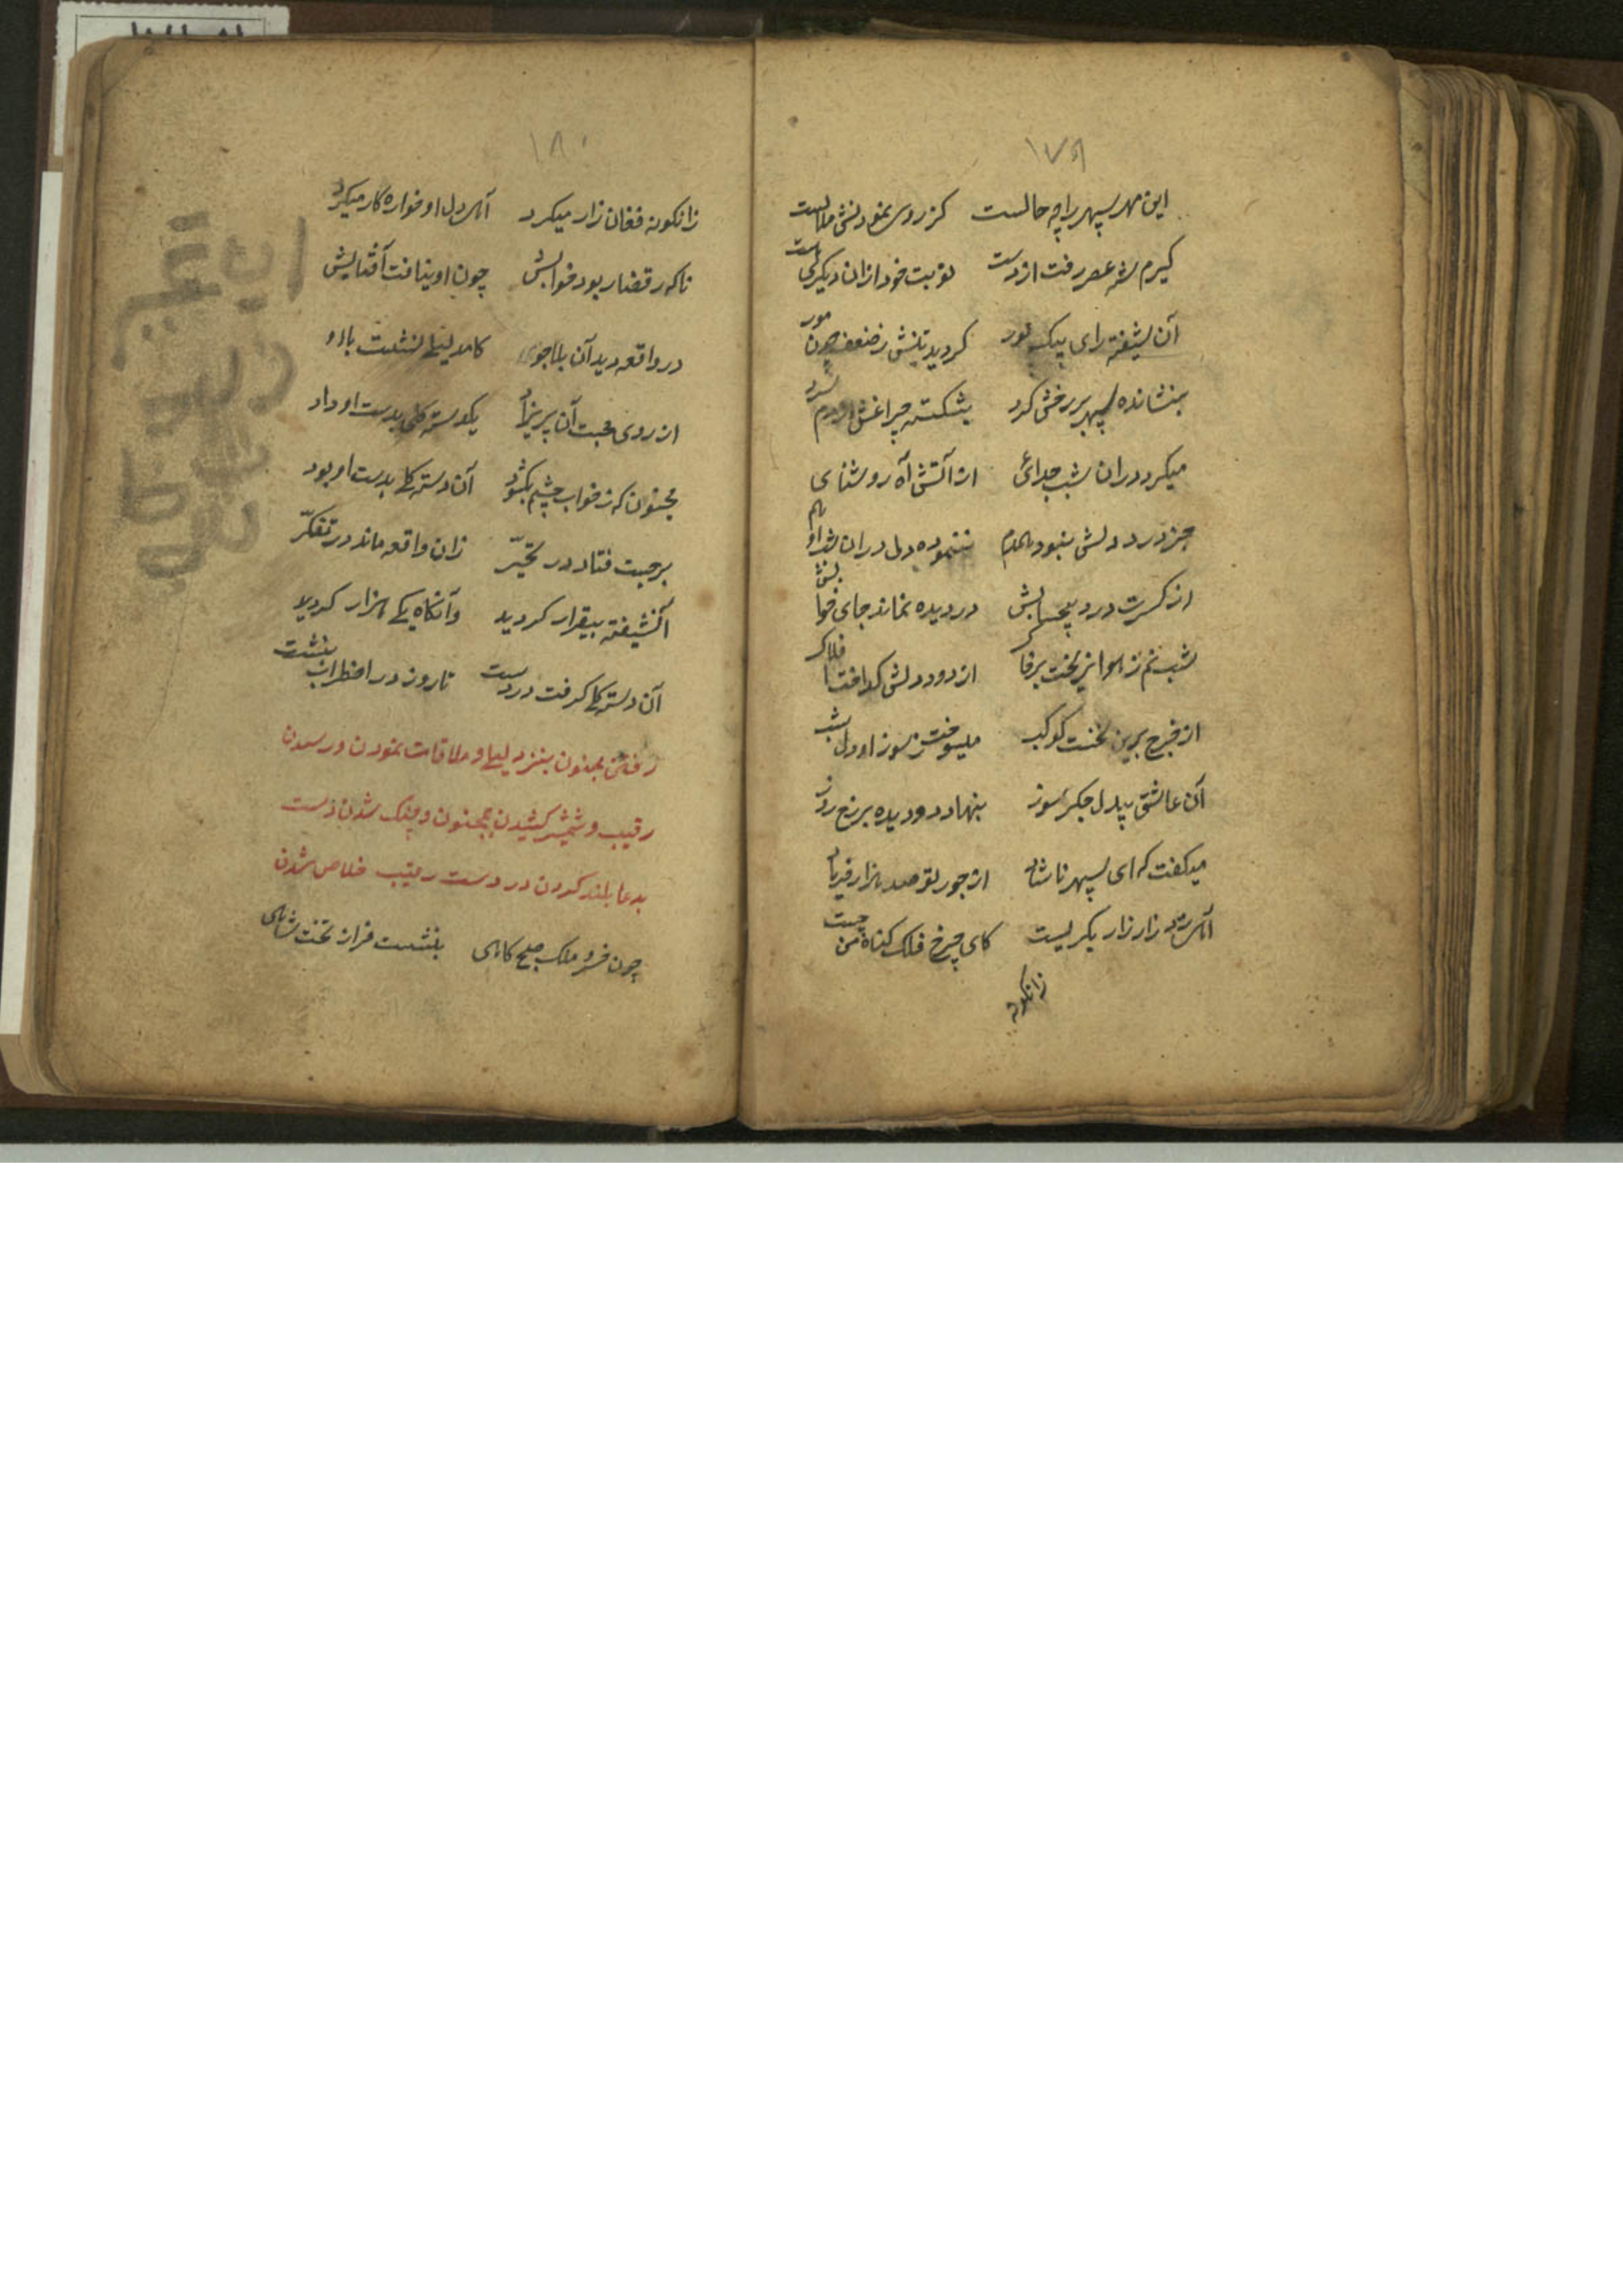 ۱۷۹
این مهر سپهر را چه حالست کز روی نمودنش ملالست
کیرم شه عصر رفت از دست نوبت خود ازان دیکری هست
آن شیفته رای پیک نور کردید تنش ز ضعف چون مور
بنشانده سپهر بر رخش کرد بشکسته چراغش از دم سرد
میکرد دران شب جدائی از آتش آه روشنای
جز درد دلش نبود همدم ننموده دل دران شب او هم
از کسرت درد در دیده نماند جای خوابش
شبنم ز هوا بر از دود دلش
از چرخ برین میسوخت ز سوز او دل شب
آن عاشق بیدل جکر سوز بنهاد دو دیده بر رخ روز
میکفت که ای سپهر ناشاد از جور تو صد هزار فریاد
زار زار بکریست کای چرخ فلک کناه من چیست
زانکونه
۱۸۰
زانکونه فغان زار میکرد دل او خواره کار میکرد
ناکه ر قضا ربود خوابش چون او بنیافت آفتابش
در واقعه دید آن بلاجوی کامد لیلی نشست با او
از روی محبت آن پریزاد یکدسته کلی بدست او داد
مجنون که ز خواب چشم بکشود آن دسته کل بدست او بود
برجست فتاد در تحیّر زان واقعه ماند در تفکّر
آنشیفته بیقرار کردید وآنکاه یکی هزار کردید
آن دسته کل کرفت در دست تا روز در اضطراب بنشست
رفتن مجنون بنزد لیلی و ملاقات نمودن و رسیدن
رقیب و شمشیر کشیدن بمجنون و خشک شدن دست
بدعا بلند کردن در دست رقیب خلاص شدن
چون خسرو ملک صبح کاهی بنشست فراز تخت شاهی